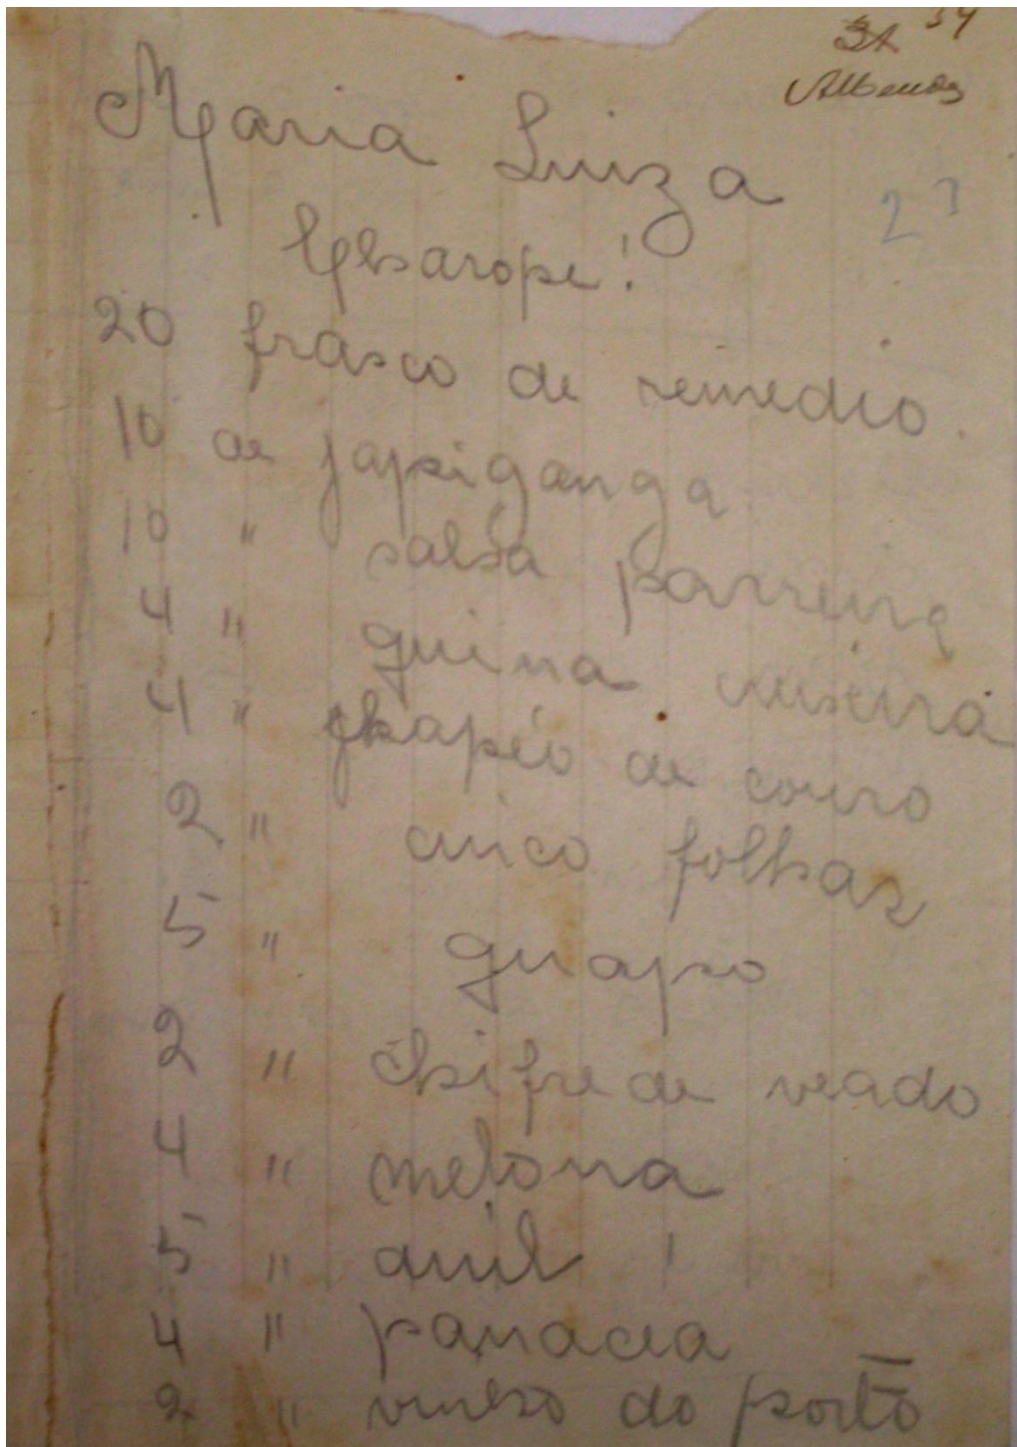 34
31
Maria Luiza
23
Charope!
20 frasco de remedio.
10 de japiganga
10 " salsa parreira
4 " guina
4 " chapéo de couro
2 " cinco folhas
5 " guapo
2 " chifre de veado
4 " melona
5 " anil
4 " panacea
2 " vinho do porto